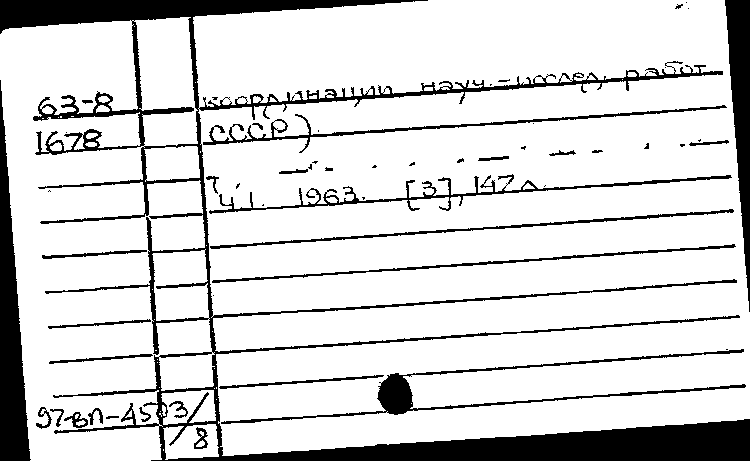 63-8 координации науч.-исслед. работ
1678 СССР)
Ч.1. 1963. [3], 147 л.
97-вп-4503/8